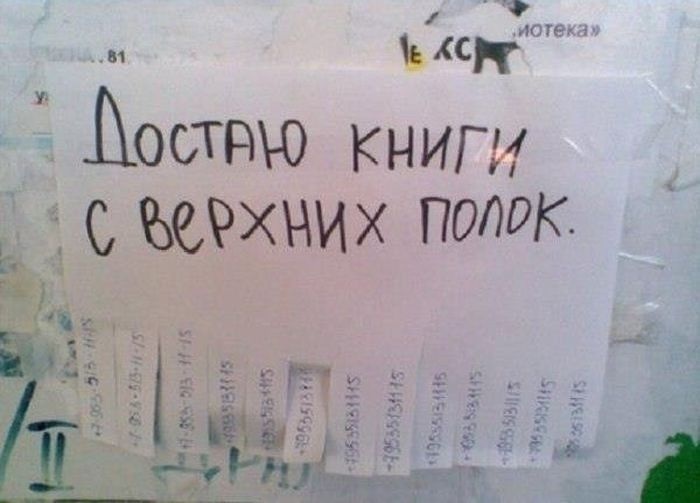 иотека»
. 81
Достаю книги
с верхних полок.
+7-953-513-11-15
+7-953-513-11-15
+7-953-513-11-15
+79535131115
+79535131115
+7953513111
+79535131115
+79535131115
+79535131115
+79535131115
+79535131115
+79535131115